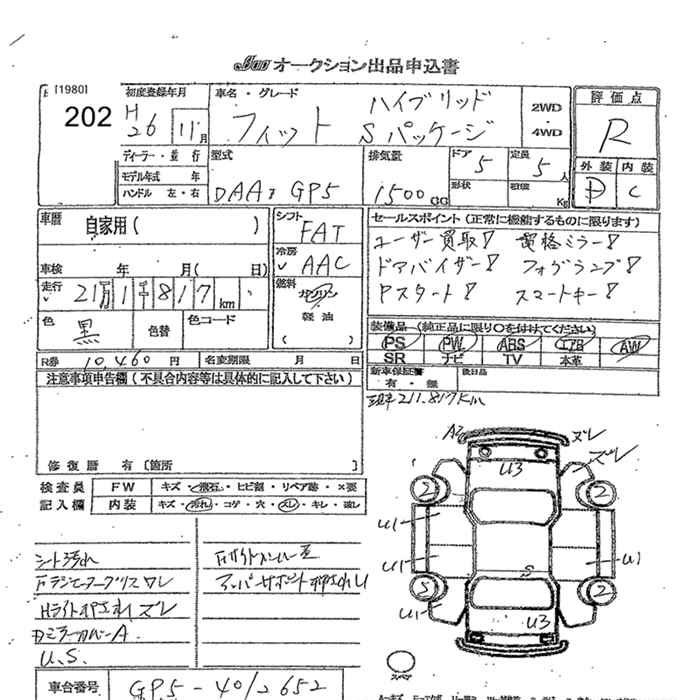 Jaa オークション出品申込書
[1980]
202
初度登録年月
H26 11月
車名・グレード
フィット ハイブリッド Sパッケージ
2WD・4WD
評価点
R
外装 内装
D C
ディーラー・並行
モデル年式 年
ハンドル 左・右
型式
DAA GP5
排気量
1500CC
ドア 5
形状
定員 5人
積載 Kg
車歴 自家用( )
シフト
FAT
冷房
AAC
燃料
ガソリン
軽油
( )
車検 年 月( 日)
走行 21万1千817km
色 黒
色替
色コード
セールスポイント(正常に機能するものに限ります)
ユーザー買取!
ドアバイザー! フォグランプ!
Pスタート! スマートキー!
装備品(純正品に限り〇を付けてください)
PS PW ABS エアB AW
SR ナビ TV 本革
R券 10,460円 名変期限 月 日
新車保証書 有・無
後日品
現車211.817Km
注意事項申告欄(不具合内容等は具体的に記入して下さい)
修復歴 有 〔箇所 〕
検査員 記入欄
FW キズ・飛石・ヒビ割・リペア跡・×要
内装 キズ・汚れ・コゲ・穴・スレ・キレ・破レ
シート汚れ
Hライトオサエズレ
Dミラーカバー A
U.S.
アッパーサポート押され U
A2 ズレ
ズレ
U3
2 2
U1
U1 U1
S
5 2
U1 U3
スペア
車台番号 GP5-4012652